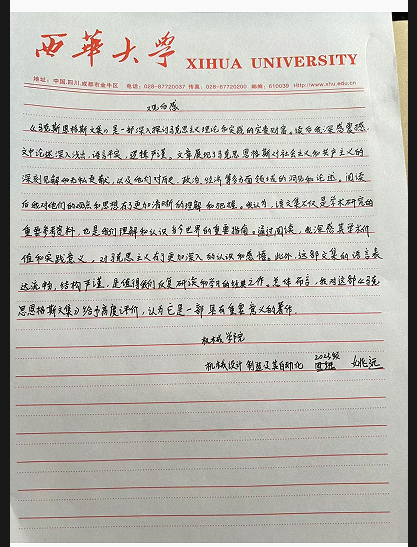 西華大學 XIHUA UNIVERSITY
地址：中国.四川.成都市金牛区 电话：028-87720037 传真：028-87720200 邮编：610039 Http://www.xhu.edu.cn
观后感
《马克思恩格斯文集》是一部深入探讨马克思主义理论和实践的宝贵财富。读后我深感震撼.
文中论述深入浅出，语言平实，逻辑严谨。文章展现了马克思恩格斯对社会主义和共产主义的
深刻见解和无私贡献，以及他们对历史、政治、经济等多方面领域的洞见和论述。阅读
后我对他们的观点和思想有了更加清晰的理解和把握。我认为，该文集不仅是学术研究的
重要参考资料，也是我们理解和认识当今世界的重要指南。通过阅读，我深感其学术价
值和实践意义，对马克思主义有了更加深入的认识和感悟。此外，这部文集的语言表
达流畅，结构严谨，是值得我们反复研读和学习的经典之作。总体而言，我对这部《马克
思恩格斯文集》给予高度评价，认为它是一部具有重要意义的著作.
机械学院
机械设计制造及其自动化 2023级 姚远